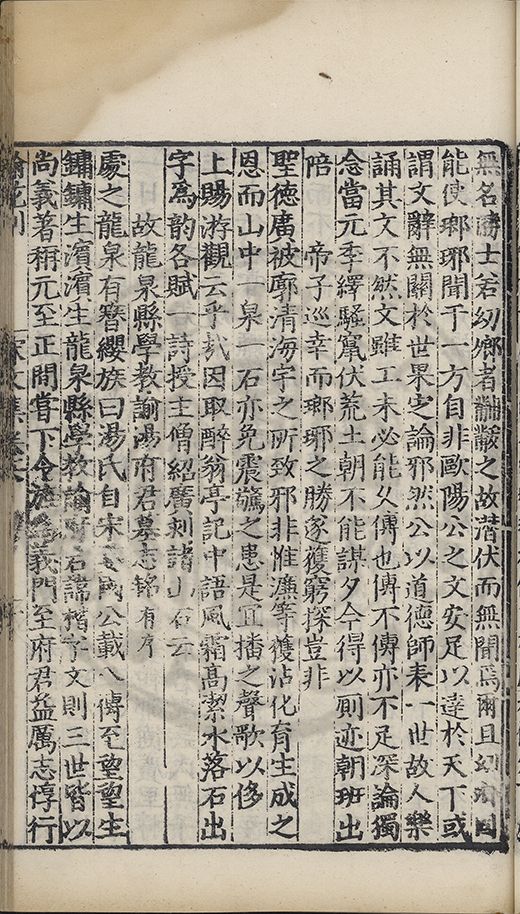 無名勝士若幼鄉者黼黻之故潛伏而無聞焉爾且幼鄉固
能使瑯琊聞于一方自非歐陽公之文安足以達於天下或
謂文辭無關於世果定論邪然公以道德師表一世故人樂
誦其文不然文雖工未必能久傳也傳不傳亦不足深論獨
念當元季繹騷竄伏荒土朝不能謀夕今得以厠迹朝班出
陪　帝子巡幸而瑯琊之勝遂獲窮探豈非
聖德廣被廓清海宇之所致邪非惟濂等獲沾化育生成之
恩而山中一泉一石亦免震驚之患是宜播之聲歌以侈
上賜游觀云乎哉因取醉翁亭記中語風霜高潔水落石出
字爲韵各賦一詩授主僧紹廣刻諸山石云
故龍泉縣學教諭湯府君墓志銘有序
處之龍泉有簪纓族曰湯氏自宋國公載八傳至望望生
鏞鏞生濱濱生龍泉縣學教諭府君諱楷字文則三世皆以
尚義著稱元至正間嘗下令旌爲義門至府君益厲志惇行